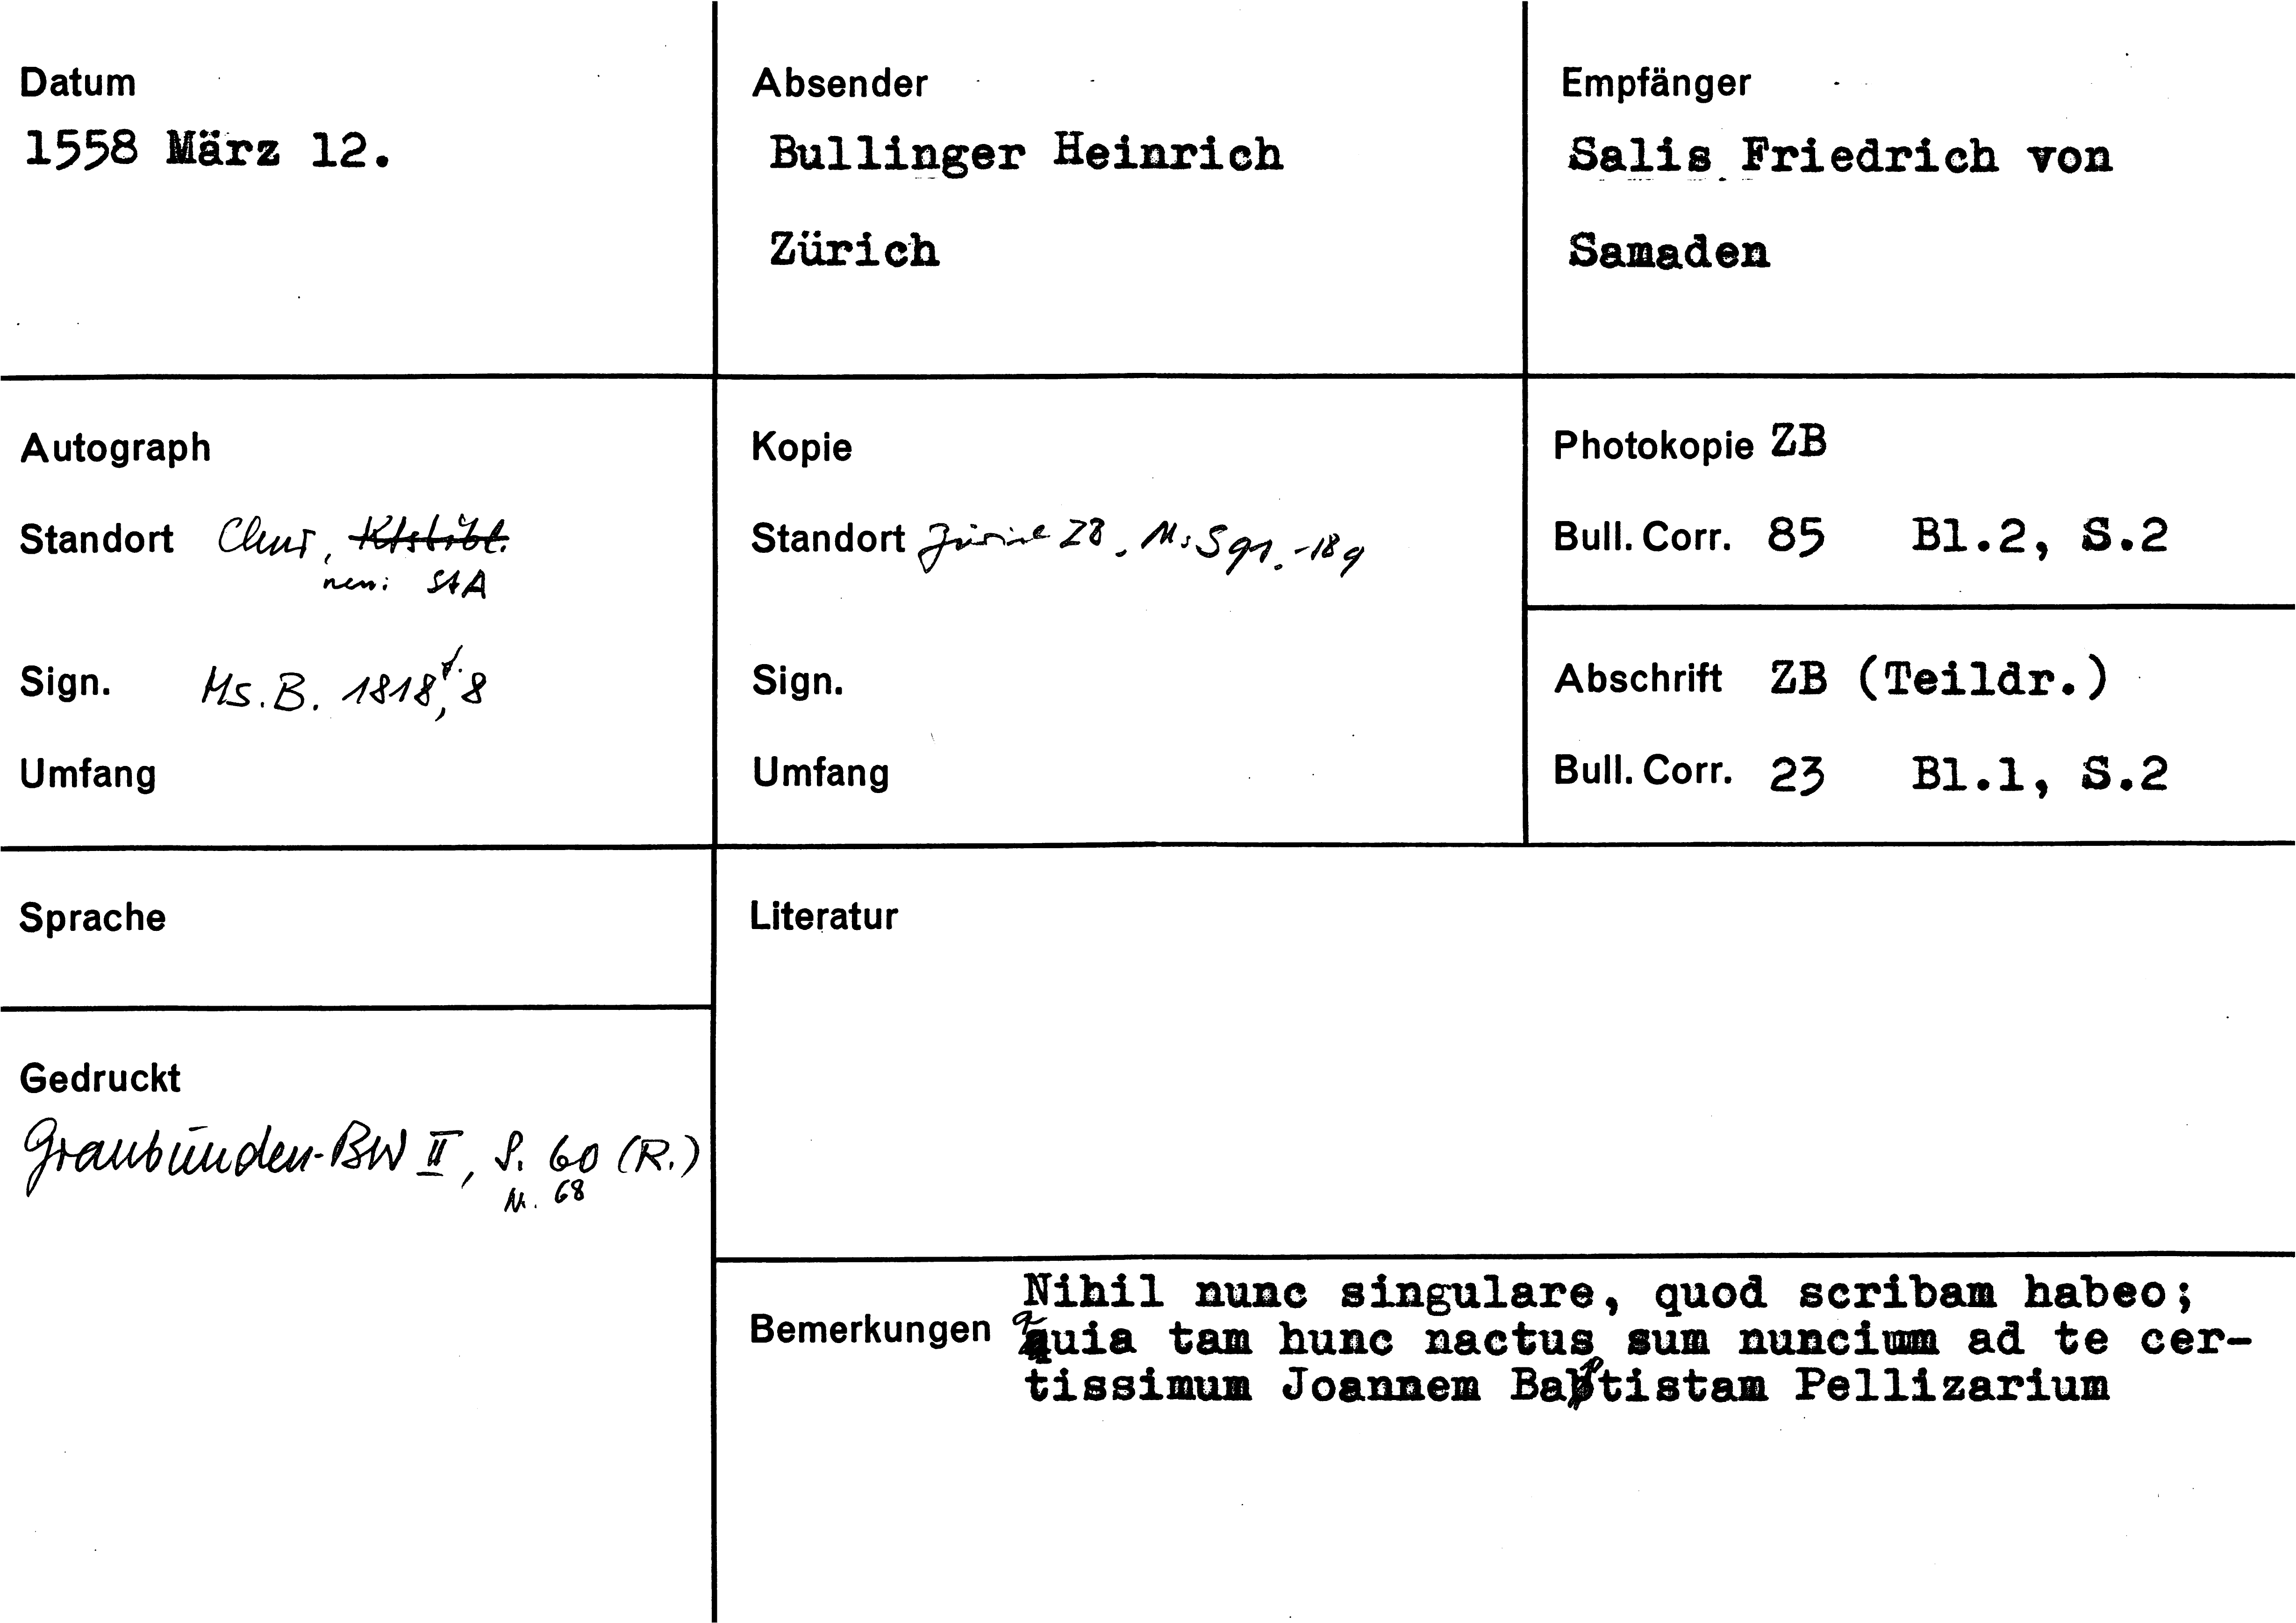 Datum
1558 März 12.
Absender
Bullinger Heinrich
Zürich
Empfänger
Salis Friedrich von
Samaden
Autograph
Standort Chur, Ktsbibl.
neu: StA
Sign. Ms.B. 1818, f. 8
Umfang
Kopie
Standort Zürich ZB. Ms
Sign.
Umfang
Photokopie ZB
Bull. Corr. 85 Bl.2, S.2
Abschrift ZB (Teildr.)
Bull. Corr. 23 Bl.1, S.2
Sprache
Literatur
Gedruckt
Graubünden-BW II, S. 60 (R.)
Nr. 68
Bemerkungen
Nihil nunc singulare, quod scribam habeo;
quia tam hunc nactus sum nuncium ad te cer-
tissimum Joannem Baptistam Pellizarium